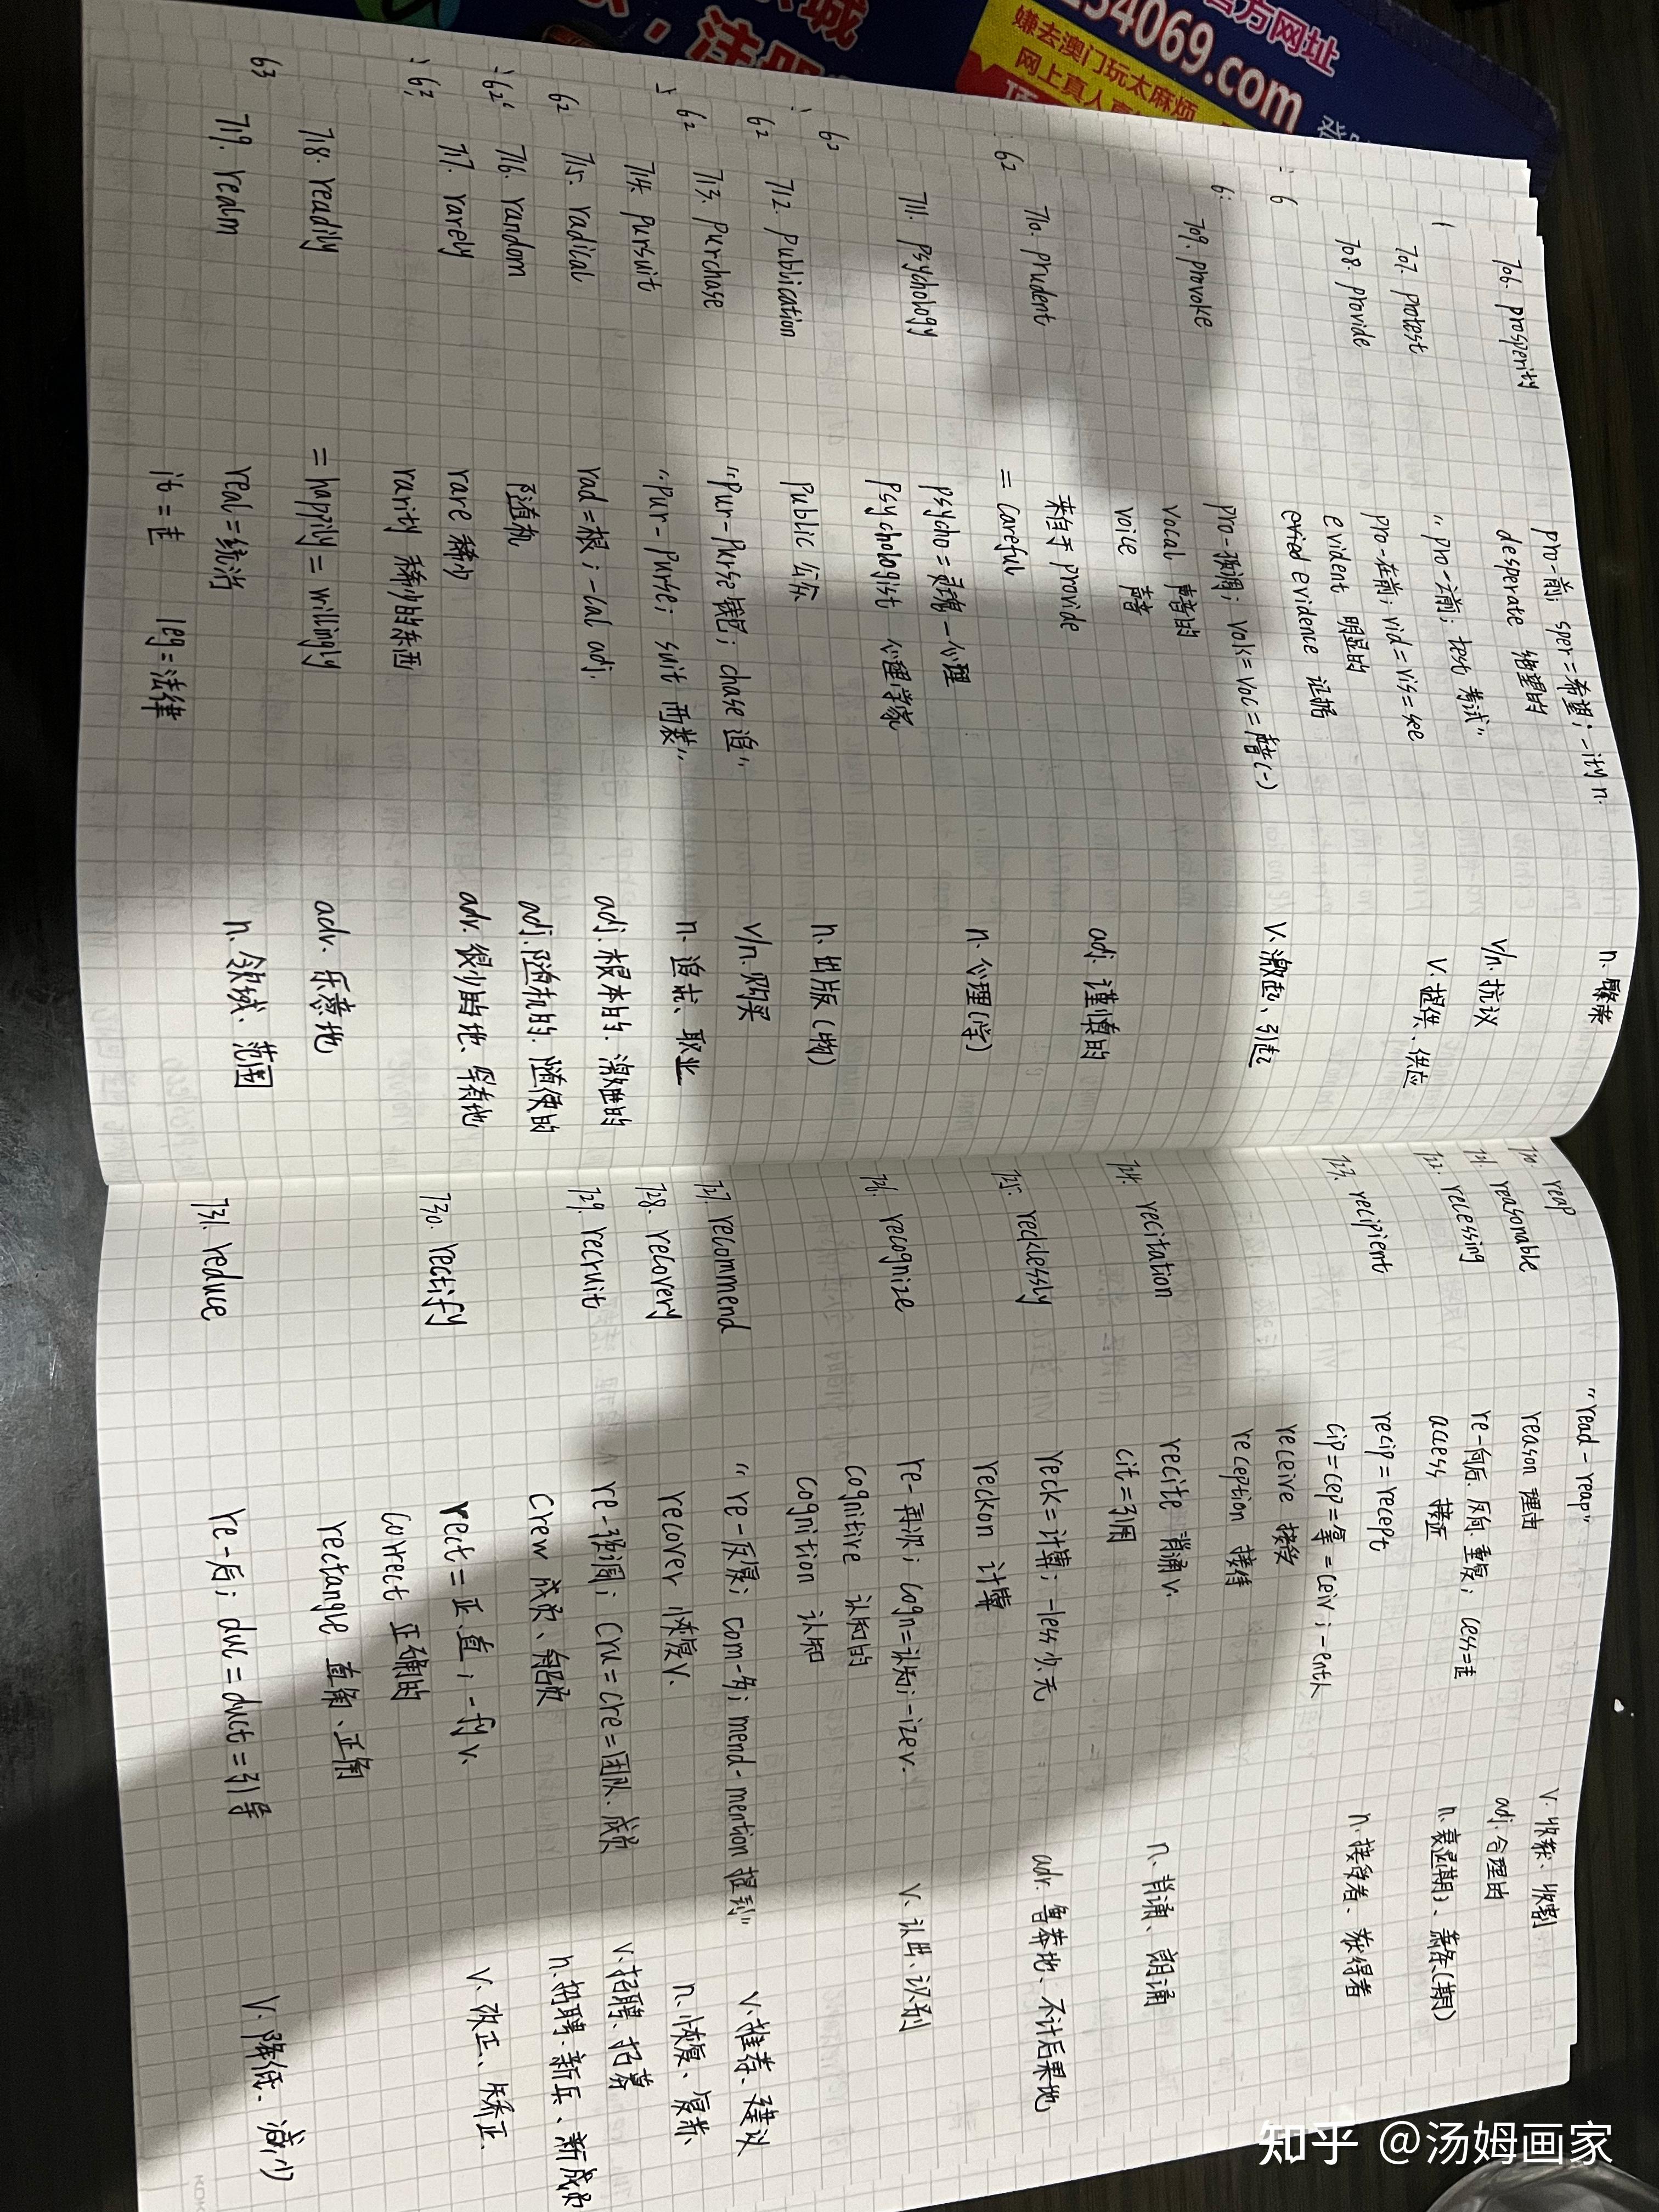 706. prosperity pro-前; sper=希望; -ity n. n. 繁荣
desperate 绝望的
707. protest "pro-前; test 考试" v/n. 抗议
708. provide pro-在前; vid=vis=see v. 提供、供应
evident 明显的
evidence 证据
709. provoke pro-强调; vok=voc=声音(-) v. 激起、引起
vocal 声音的
voice 声音
710. prudent 来自于 provide adj. 谨慎的
= careful
711. psychology psycho=灵魂-心理 n. 心理(学)
psychologist 心理学家
712. publication public 公众 n. 出版(物)
713. purchase "pur-purse 钱包; chase 追" v/n. 购买
714. pursuit "pur-purse; suit 西装" n. 追求、职业
715. radical rad=根; -al adj. adj. 根本的、激进的
716. random 随机 adj. 随机的、随便的
717. rarely rare 稀少 adv. 很少的地、罕有地
rarity 稀少的东西
718. readily = happily = willingly adv. 乐意地
719. realm real=统治 n. 领域、范围
it=走 leg=法律
720 reap "read-reap" v. 收获、收割
721 reasonable reason 理由 adj. 合理的
722. recessing re-向后.反向.重复; cess=走 n. 衰退期、萧条(期)
access 接近
723. recipient recip=recept n. 接受者、获得者
cip=cep=拿=ceiv; -ent 人
receive 接受
reception 接待
724. recitation recite 背诵 v. n. 背诵、朗诵
cit=引用
725. recklessly reck=计算; -less 少.无 adv. 鲁莽地、不计后果地
reckon 计算
726. recognize re-再次; cogn=认知; -ize v. v. 认出、识别
cognitive 认知的
cognition 认知
727. recommend "re-反复; com-多; mend-mention 提到" v. 推荐、建议
728. recovery recover 恢复 v. n. 恢复、复苏
729. recruit re-强调; cru=cre=团队.成员 v. 招聘、招募
crew 成员、船员 n. 招聘.新兵、新成员
730. rectify rect=正.直; -fy v. v. 改正、矫正
correct 正确的
rectangle 直角、正角
731. reduce re-后; duc=duct=引导 v. 降低、减少
官方网址
34069.com
嫌去澳门玩太麻烦
网上真人
知乎 @汤姆画家